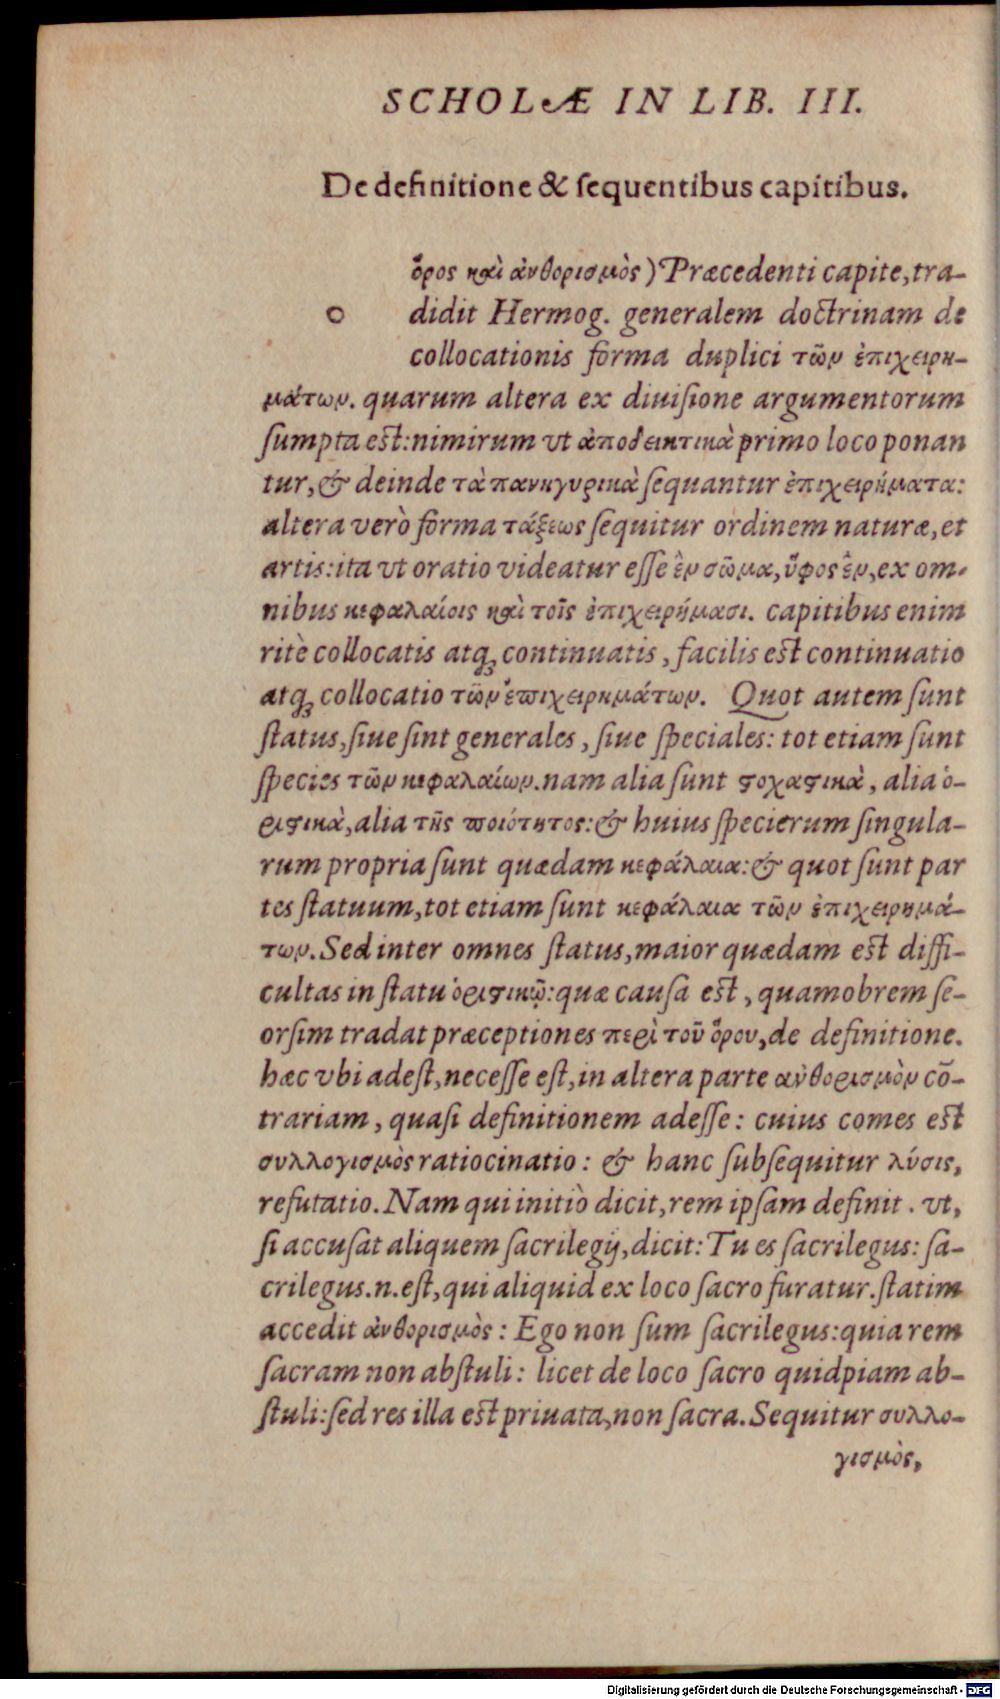 SCHOLÆ IN LIB. III.
De definitione & sequentibus capitibus.
ὅρος καὶ ἀνθορισμὸς) Præcedenti capite, tra-
o didit Hermog. generalem doctrinam de
collocationis forma duplici τῶν ἐπιχειρη-
μάτων. quarum altera ex diuisione argumentorum
sumpta est: nimirum vt ἀποδεικτικὰ primo loco ponan
tur, & deinde τὰ πανηγυρικὰ sequantur ἐπιχειρήματα:
altera verò forma τάξεως sequitur ordinem naturæ, et
artis: ita vt oratio videatur esse ἓν σῶμα, ὕφος ἓν, ex om-
nibus κεφαλαίοις καὶ τοῖς ἐπιχειρήμασι. capitibus enim
ritè collocatis atq; continuatis, facilis est continuatio
atq; collocatio τῶν ἐπιχειρημάτων. Quot autem sunt
status, siue sint generales, siue speciales: tot etiam sunt
species τῶν κεφαλαίων. nam alia sunt ϛοχαϛικὰ, alia ὁ-
ριϛικὰ, alia τῆς ποιότητος: & huius specierum singula-
rum propria sunt quædam κεφάλαια: & quot sunt par
tes statuum, tot etiam sunt κεφάλαια τῶν ἐπιχειρημά-
των. Sed inter omnes status, maior quædam est diffi-
cultas in statu ὁριϛικῷ: quæ causa est, quamobrem se-
orsim tradat præceptiones περὶ τοῦ ὅρου, de definitione.
hæc vbi adest, necesse est, in altera parte ἀνθορισμὸν cō-
trariam, quasi definitionem adesse: cuius comes est
συλλογισμὸς ratiocinatio: & hanc subsequitur λύσις,
refutatio. Nam qui initiò dicit, rem ipsam definit. vt,
si accusat aliquem sacrilegij, dicit: Tu es sacrilegus: sa-
crilegus .n. est, qui aliquid ex loco sacro furatur. statim
accedit ἀνθορισμὸς: Ego non sum sacrilegus: quia rem
sacram non abstuli: licet de loco sacro quidpiam ab-
stuli: sed res illa est priuata, non sacra. Sequitur συλλο-
γισμὸς,
Digitalisierung gefördert durch die Deutsche Forschungsgemeinschaft - DFG